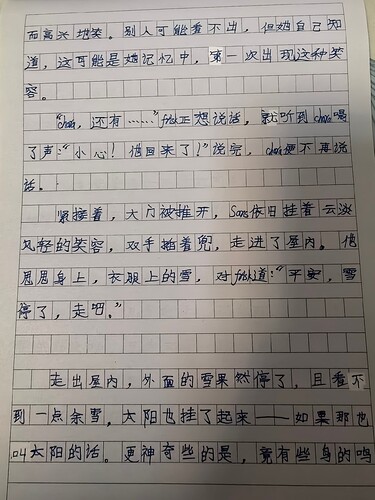 而高兴地笑。别人可能看不出，但她自己知
道，这可能是她记忆中，第一次出现这种笑
容。
“Chara，还有……”frisk正想说话，就听到Chara喝
了声：“小心！他回来了！”说完，Chara便不再说
话。
紧接着，大门被推开，Sans依旧挂着云淡
风轻的笑容，双手插着兜，走进了屋内。他
甩甩身上，衣服上的雪，对frisk道：“平安，雪
停了，走吧。”
走出屋内，外面的雪果然停了，且看不
到一点余雪，太阳也挂了起来——如果那也
叫太阳的话。更神奇些的是，竟有些鸟的鸣